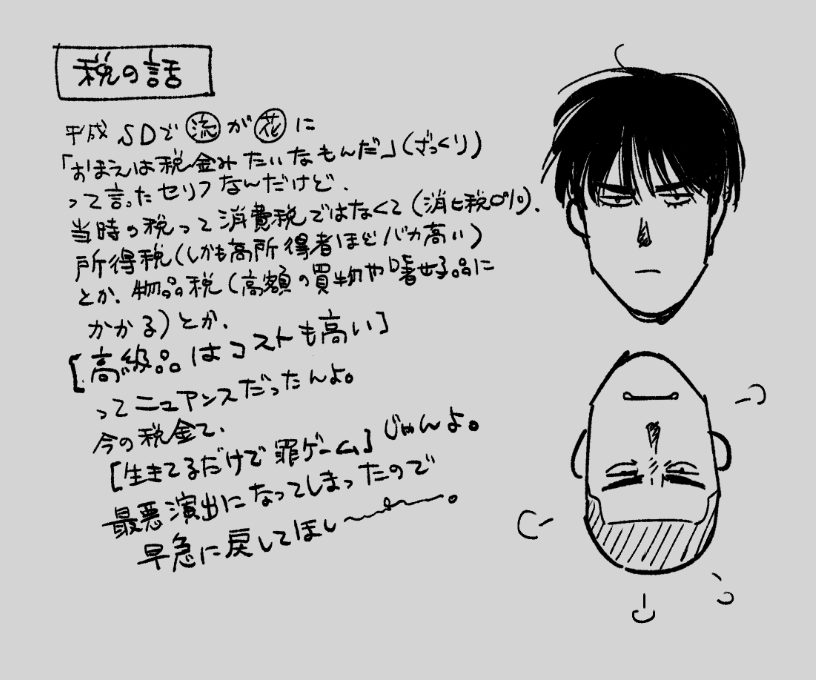 税の話
平成SDで流が花に
「おまえは税金みたいなもんだ」(ざっくり)
って言ったセリフなんだけど、
当時の税って消費税ではなくて(消ヒ税0%)、
所得税(しかも高所得者ほどバカ高い)
とか、物品税(高額の買物や嗜好品に
かかる)とか、
[高級品はコストも高い]
ってニュアンスだったんよ。
今の税金て、
[生きてるだけで罪ゲーム]じゃんよ。
最悪演出になってしまったので
早急に戻してほし〜〜。